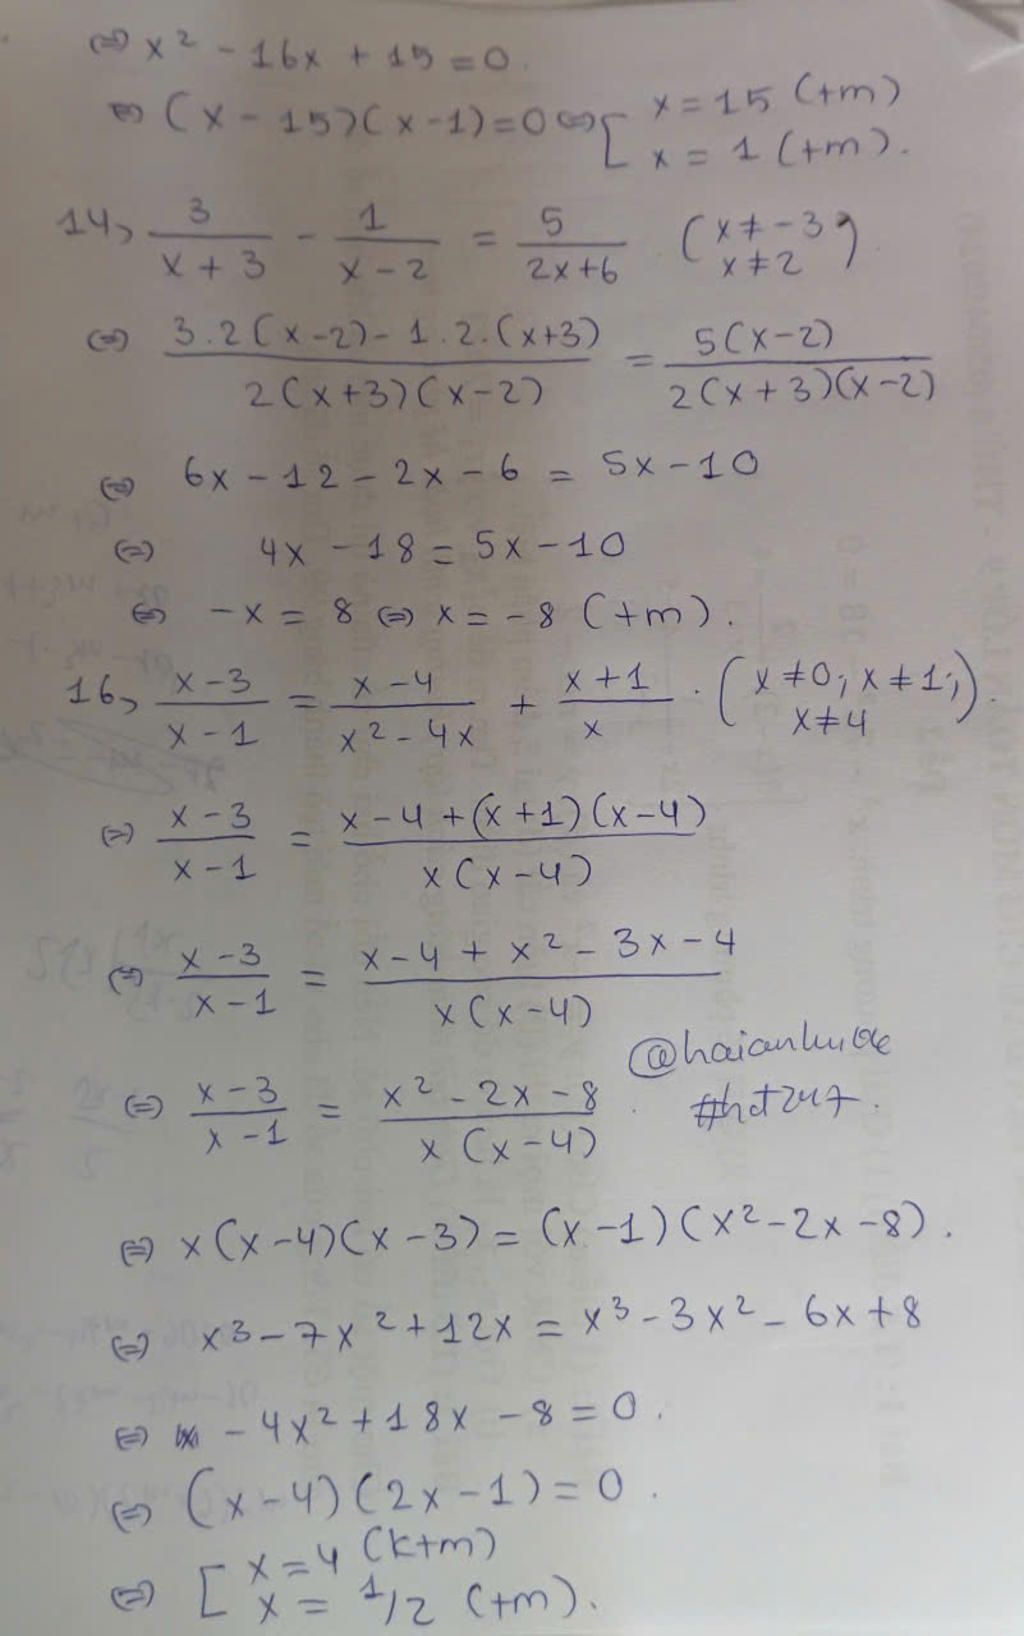 ⇔ x² - 16x + 15 = 0.
⇔ (x - 15)(x - 1) = 0 ⇔ [ x = 15 (tm)
x = 1 (tm).
14, 3/(x + 3) - 1/(x - 2) = 5/(2x + 6) . (x ≠ -3
x ≠ 2).
⇔ (3.2(x - 2) - 1.2.(x + 3))/(2(x + 3)(x - 2)) = 5(x - 2)/(2(x + 3)(x - 2))
⇔ 6x - 12 - 2x - 6 = 5x - 10
⇔ 4x - 18 = 5x - 10
⇔ -x = 8 ⇔ x = -8 (tm).
16, (x - 3)/(x - 1) = (x - 4)/(x² - 4x) + (x + 1)/x . (x ≠ 0; x ≠ 1;
x ≠ 4).
⇔ (x - 3)/(x - 1) = (x - 4 + (x + 1)(x - 4))/(x(x - 4))
⇔ (x - 3)/(x - 1) = (x - 4 + x² - 3x - 4)/(x(x - 4))
⇔ (x - 3)/(x - 1) = (x² - 2x - 8)/(x(x - 4)) .
#hdt247.
⇔ x(x - 4)(x - 3) = (x - 1)(x² - 2x - 8).
⇔ x³ - 7x² + 12x = x³ - 3x² - 6x + 8
⇔ - 4x² + 18x - 8 = 0.
⇔ (x - 4)(2x - 1) = 0.
⇔ [ x = 4 (ktm)
x = 1/2 (tm).